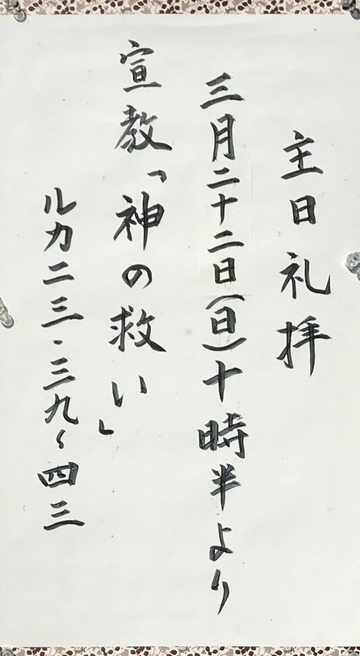 主日礼拝
三月二十二日(日)十時半より
宣教「神の救い」
ルカ二三・三九〜四三